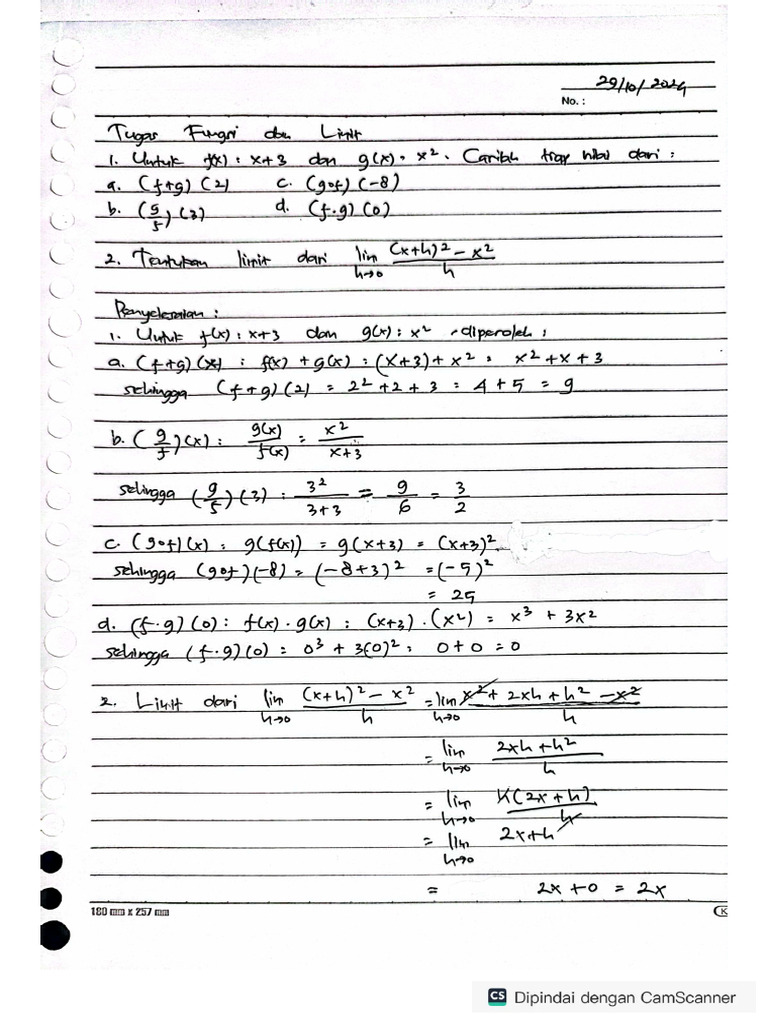 29/10/2024
No. :
Tugas Fungsi dan Limit
1. Untuk f(x) : x+3 dan g(x) = x². Carilah tiap nilai dari :
a. (f+g) (2) c. (gof) (-8)
b. (g/f) (3) d. (f.g) (0)
2. Tentukan limit dari lim h→0 (x+h)² - x² / h
Penyelesaian :
1. Untuk f(x) : x+3 dan g(x) : x², diperoleh :
a. (f+g) (x) : f(x) + g(x) : (x+3) + x² : x² + x + 3
sehingga (f+g) (2) = 2² + 2 + 3 : 4 + 5 = 9
b. (g/f) (x) : g(x)/f(x) : x²/x+3
sehingga (g/f) (3) : 3²/3+3 = 9/6 = 3/2
c. (gof) (x) : g(f(x)) = g(x+3) = (x+3)²
sehingga (gof) (-8) = (-8+3)² = (-5)²
= 25
d. (f.g) (0) : f(x) . g(x) : (x+3) . (x²) = x³ + 3x²
sehingga (f.g) (0) : 0³ + 3(0)² : 0 + 0 = 0
2. Limit dari lim h→0 (x+h)² - x² / h = lim h→0 x² + 2xh + h² - x² / h
= lim h→0 2xh + h² / h
= lim h→0 h(2x + h) / h
= lim h→0 2x+h
= 2x + 0 = 2x
180 mm x 257 mm
K
CS Dipindai dengan CamScanner